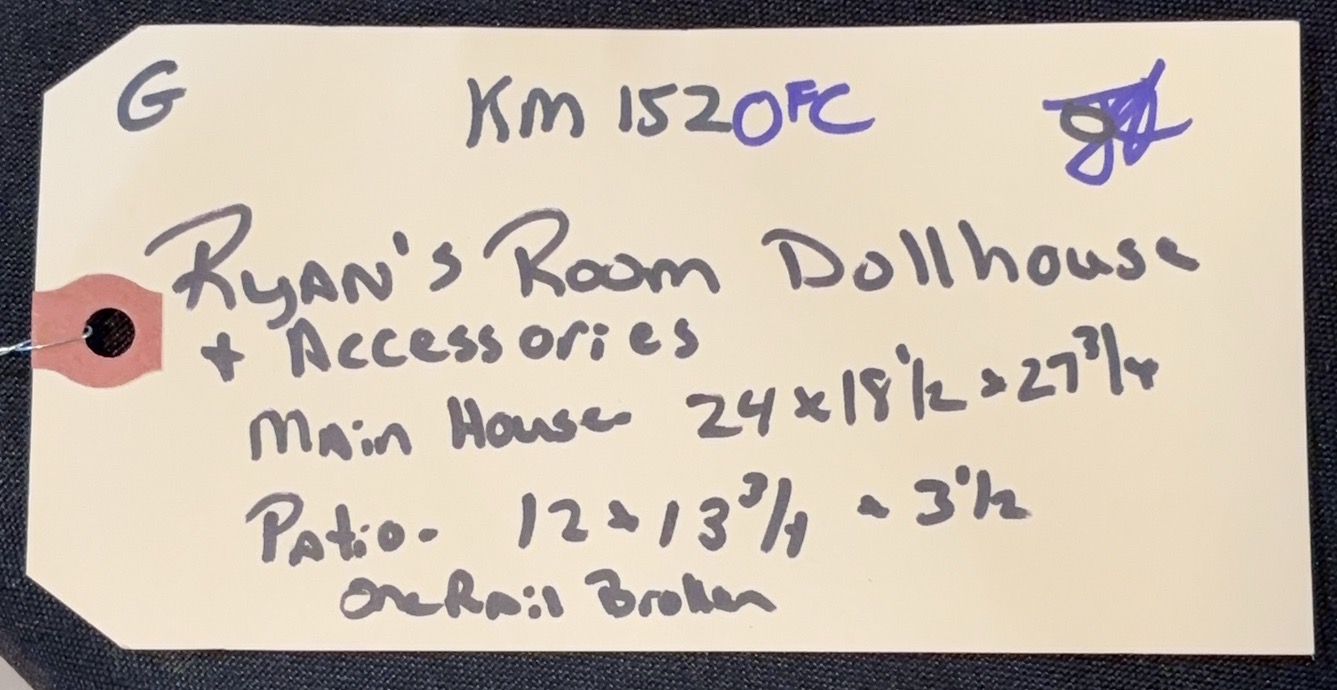 G KM 152 OFC
RyAN's Room Dollhouse
+ Accessories
MAin House 24 x 18 1/2 x 27 3/4
PAtio- 12 x 13 3/4 x 3 1/2
One RAil Broken